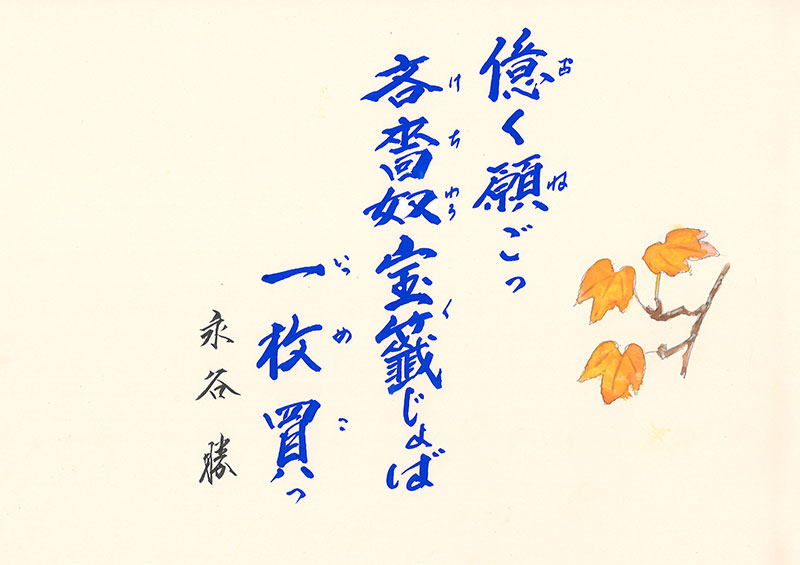 億く願ごっ
吝嗇奴宝籤じょば
一枚買っ
永谷勝